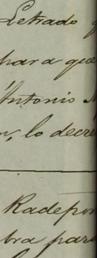 Letrado
para que
Antonio
lo decre
Radepon
bra para